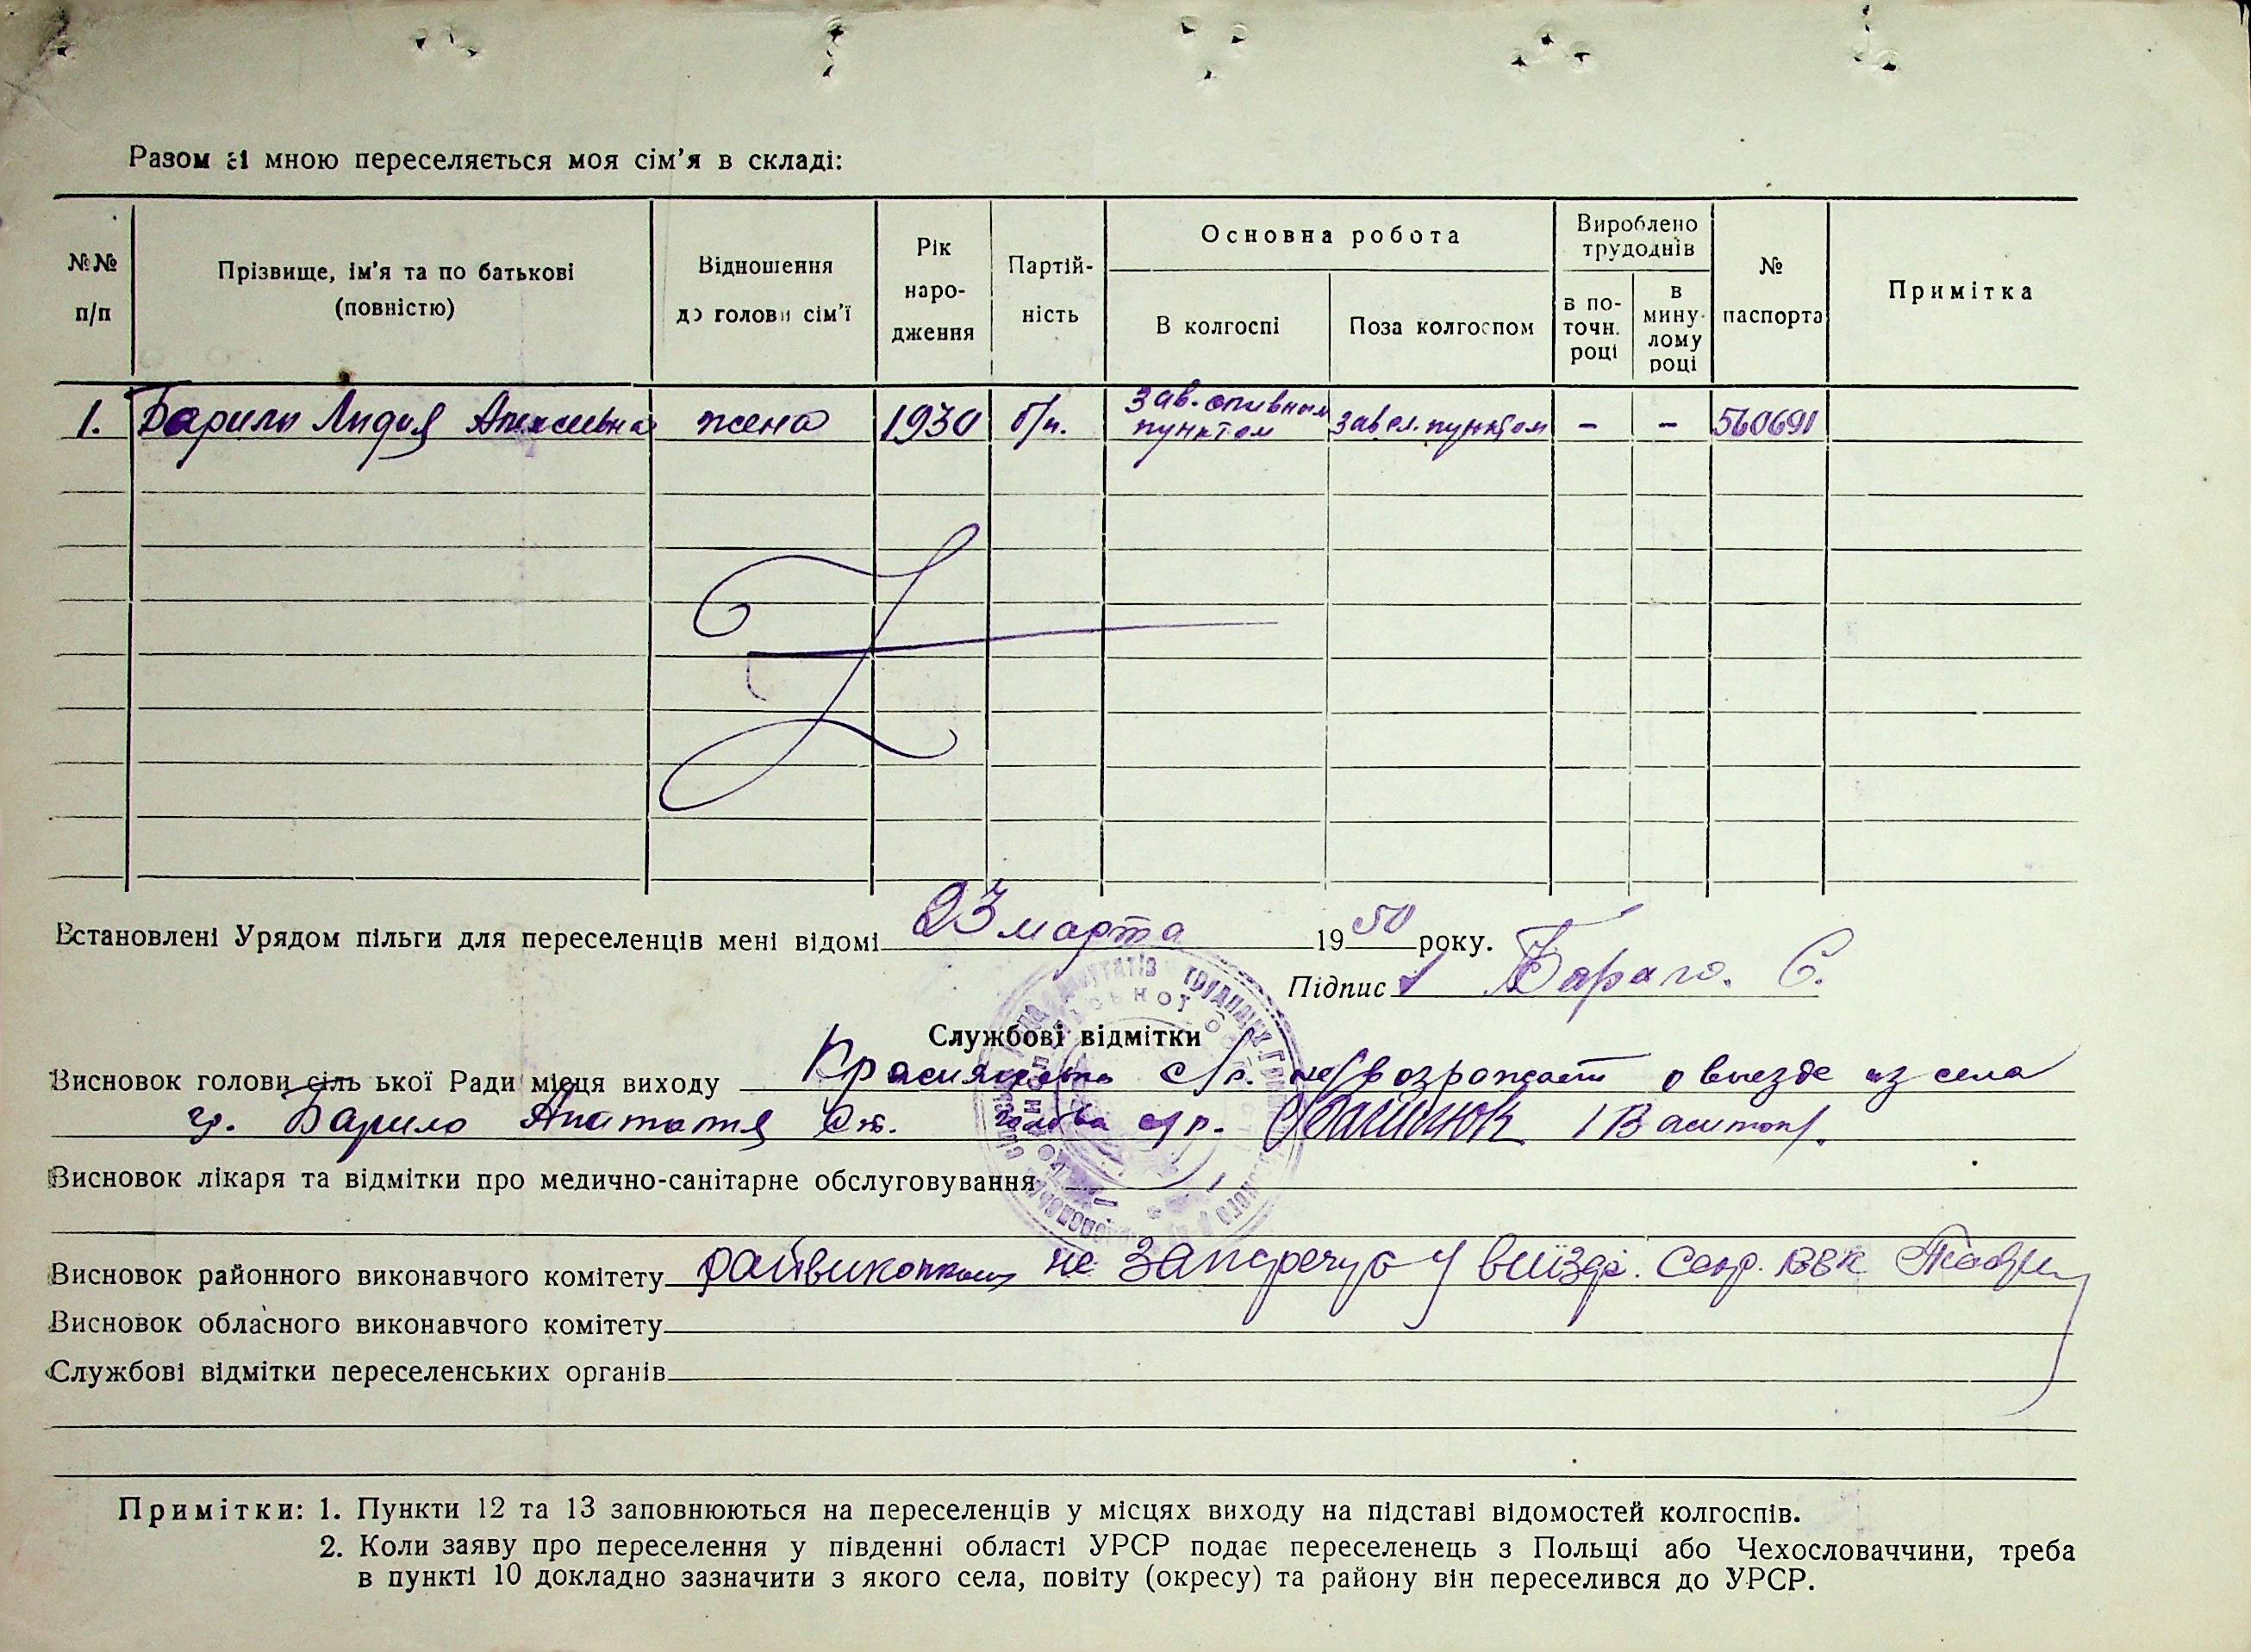 Разом зі мною переселяється моя сім'я в складі:
№№ п/п
Прізвище, ім'я та по батькові (повністю)
Відношення до голови сім'ї
Рік народження
Партійність
Основна робота
В колгоспі
Поза колгоспом
Вироблено трудоднів
в поточн. році
в минулому році
№ паспорта
Примітка
1. Барило Лидия Алексеевна жена 1930 б/п. Зав. сливным пунктом Зав сл. пунктом - - 560691
Встановлені Урядом пільги для переселенців мені відомі 23 марта 1950 року.
Підпис Барило. С.
Службові відмітки
Висновок голови сільської Ради місця виходу с/р. не возрожает о выезде из села
гр. Барило голова с/р.
Висновок лікаря та відмітки про медично-санітарне обслуговування
Висновок районного виконавчого комітету райвиконком не заперечує у виїзді. Секр. РВК
Висновок обласного виконавчого комітету
Службові відмітки переселенських органів
Примітки: 1. Пункти 12 та 13 заповнюються на переселенців у місцях виходу на підставі відомостей колгоспів.
2. Коли заяву про переселення у південні області УРСР подає переселенець з Польщі або Чехословаччини, треба
в пункті 10 докладно зазначити з якого села, повіту (окресу) та району він переселився до УРСР.